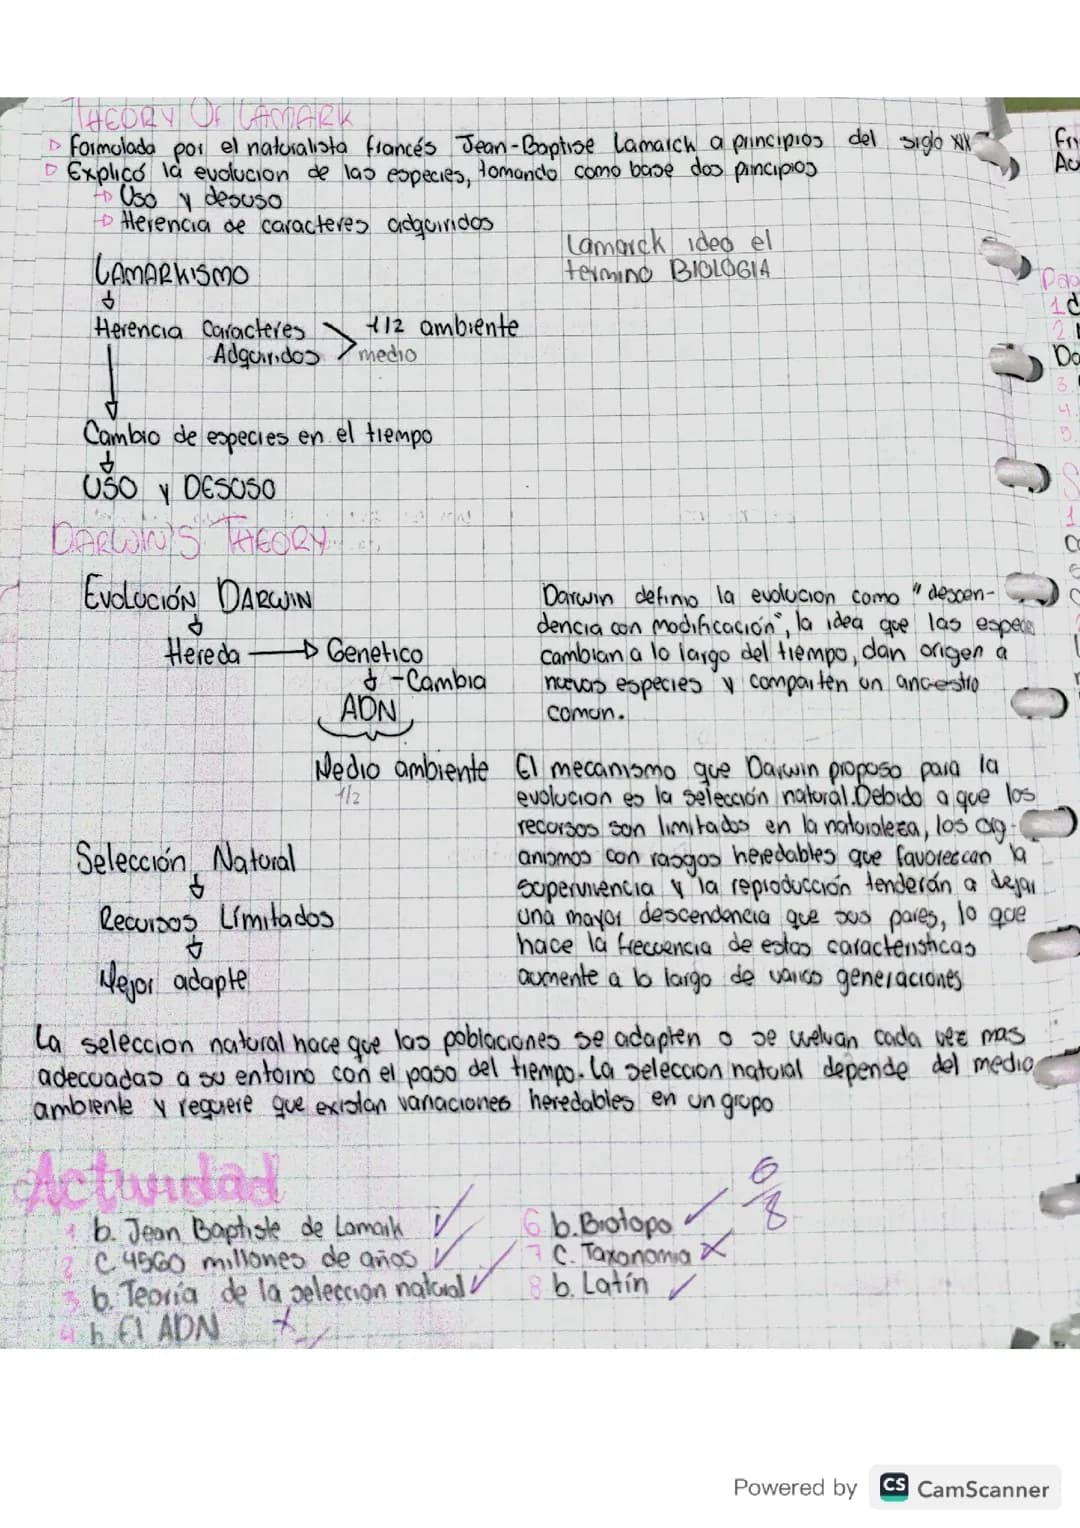 THEORY OF LAMARK
Formulada por el naturalista francés Jean-Baptise Lamarck a principios del siglo XIX
Explicó la evolucion de las especies, tomando como base dos principios
Uso y desuso
Herencia de caracteres adquiridos
Lamarck ideo el
termino BIOLOGIA
LAMARKISMO
Herencia Caracteres
Adquiridos
1/2 ambiente
medio
Cambio de especies en el tiempo
USO y DESUSO
DARWIN'S THEORY
Evolución DARWIN
Hereda → Genetico
-Cambia
ADN
Medio ambiente
1/2
Selección Natural
Recursos Límitados
Mejor adapte
Darwin definio la evolucion como "descen-
dencia con modificación", la idea que las especies
cambian a lo largo del tiempo, dan origen a
nuevas especies y comparten un ancestro
comun.
El mecanismo que Darwin propuso para la
evolucion es la selección natural. Debido a que los
recursos son limitados en la naturaleza, los org-
anismos con rasgos heredables que favorescan la
supervivencia y la reproducción tenderán a dejar
una mayor descendencia que sus pares, lo que
hace la frecuencia de estas caracteristicas
aumente a lo largo de varias generaciones
La seleccion natural hace que las poblaciones se adapten o se vuelvan cada vez mas
adecuadas a su entorno con el paso del tiempo. La seleccion natural depende del medio
ambiente y requiere que existan variaciones heredables en un grupo
Actividad
6/8
1 b. Jean Baptiste de Lamark
2 C. 4560 millones de años
3 b. Teoría de la seleccion natural
4 b. El ADN
6 b. Biotopo
7 C. Taxonomia
8 b. Latín
Powered by CS CamScanner